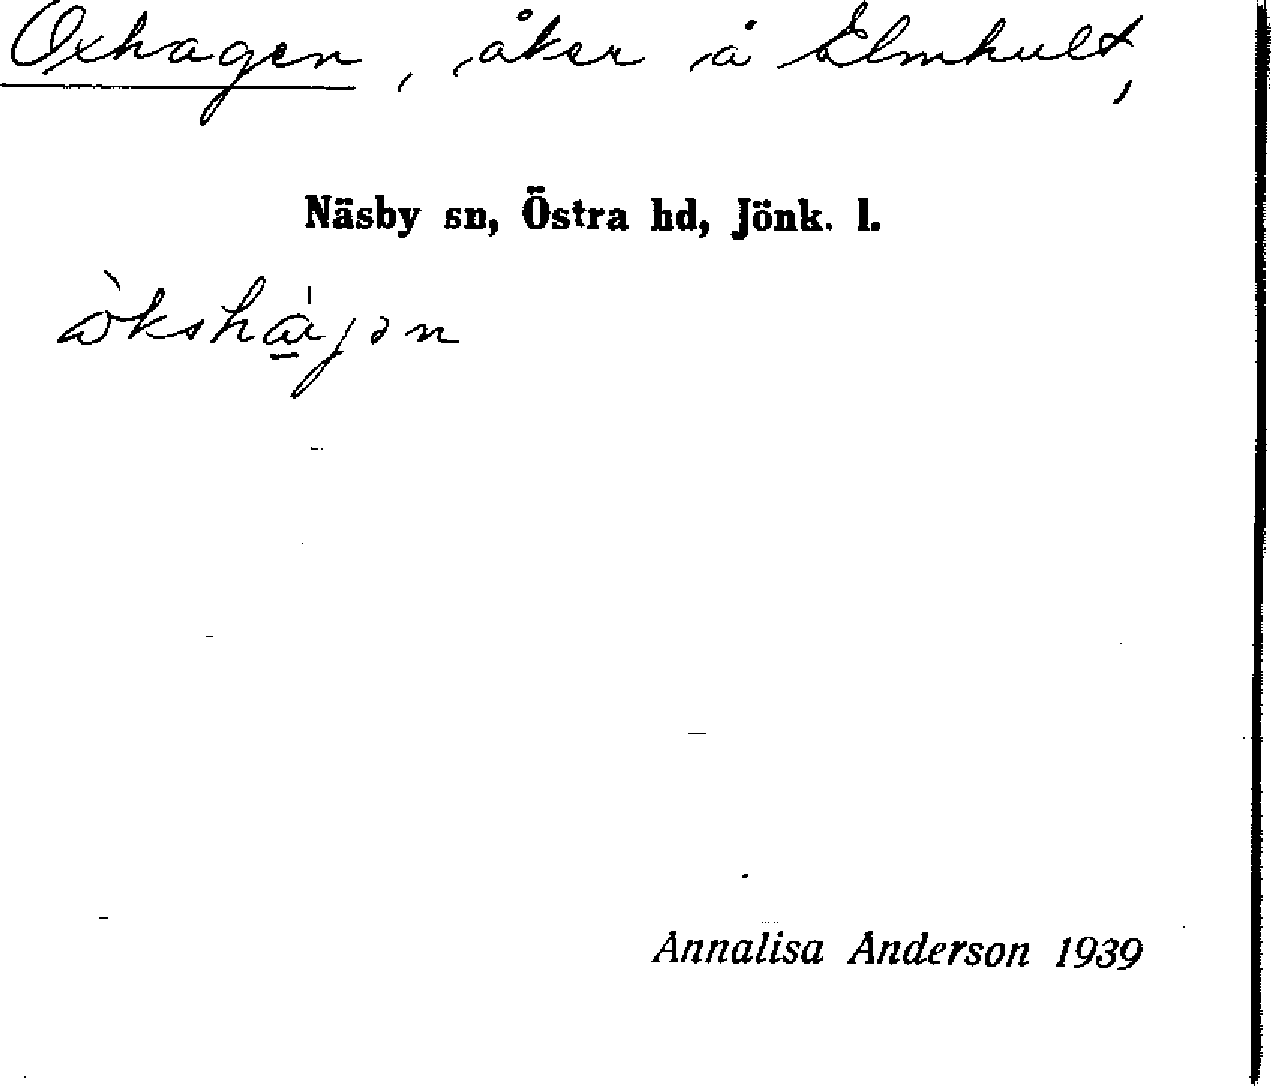 Oxhagen, åker å Elmhult,
Näsby sn, Östra hd, Jönk. l.
Annalisa Anderson 1939